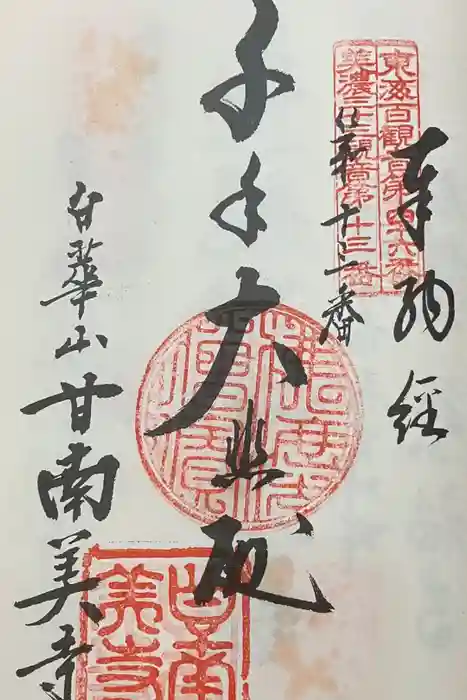 奉納経
東海百観音第四十六番
美濃三十三観音第十三番
千手大悲殿
白華山
甘南美寺
甘南美寺